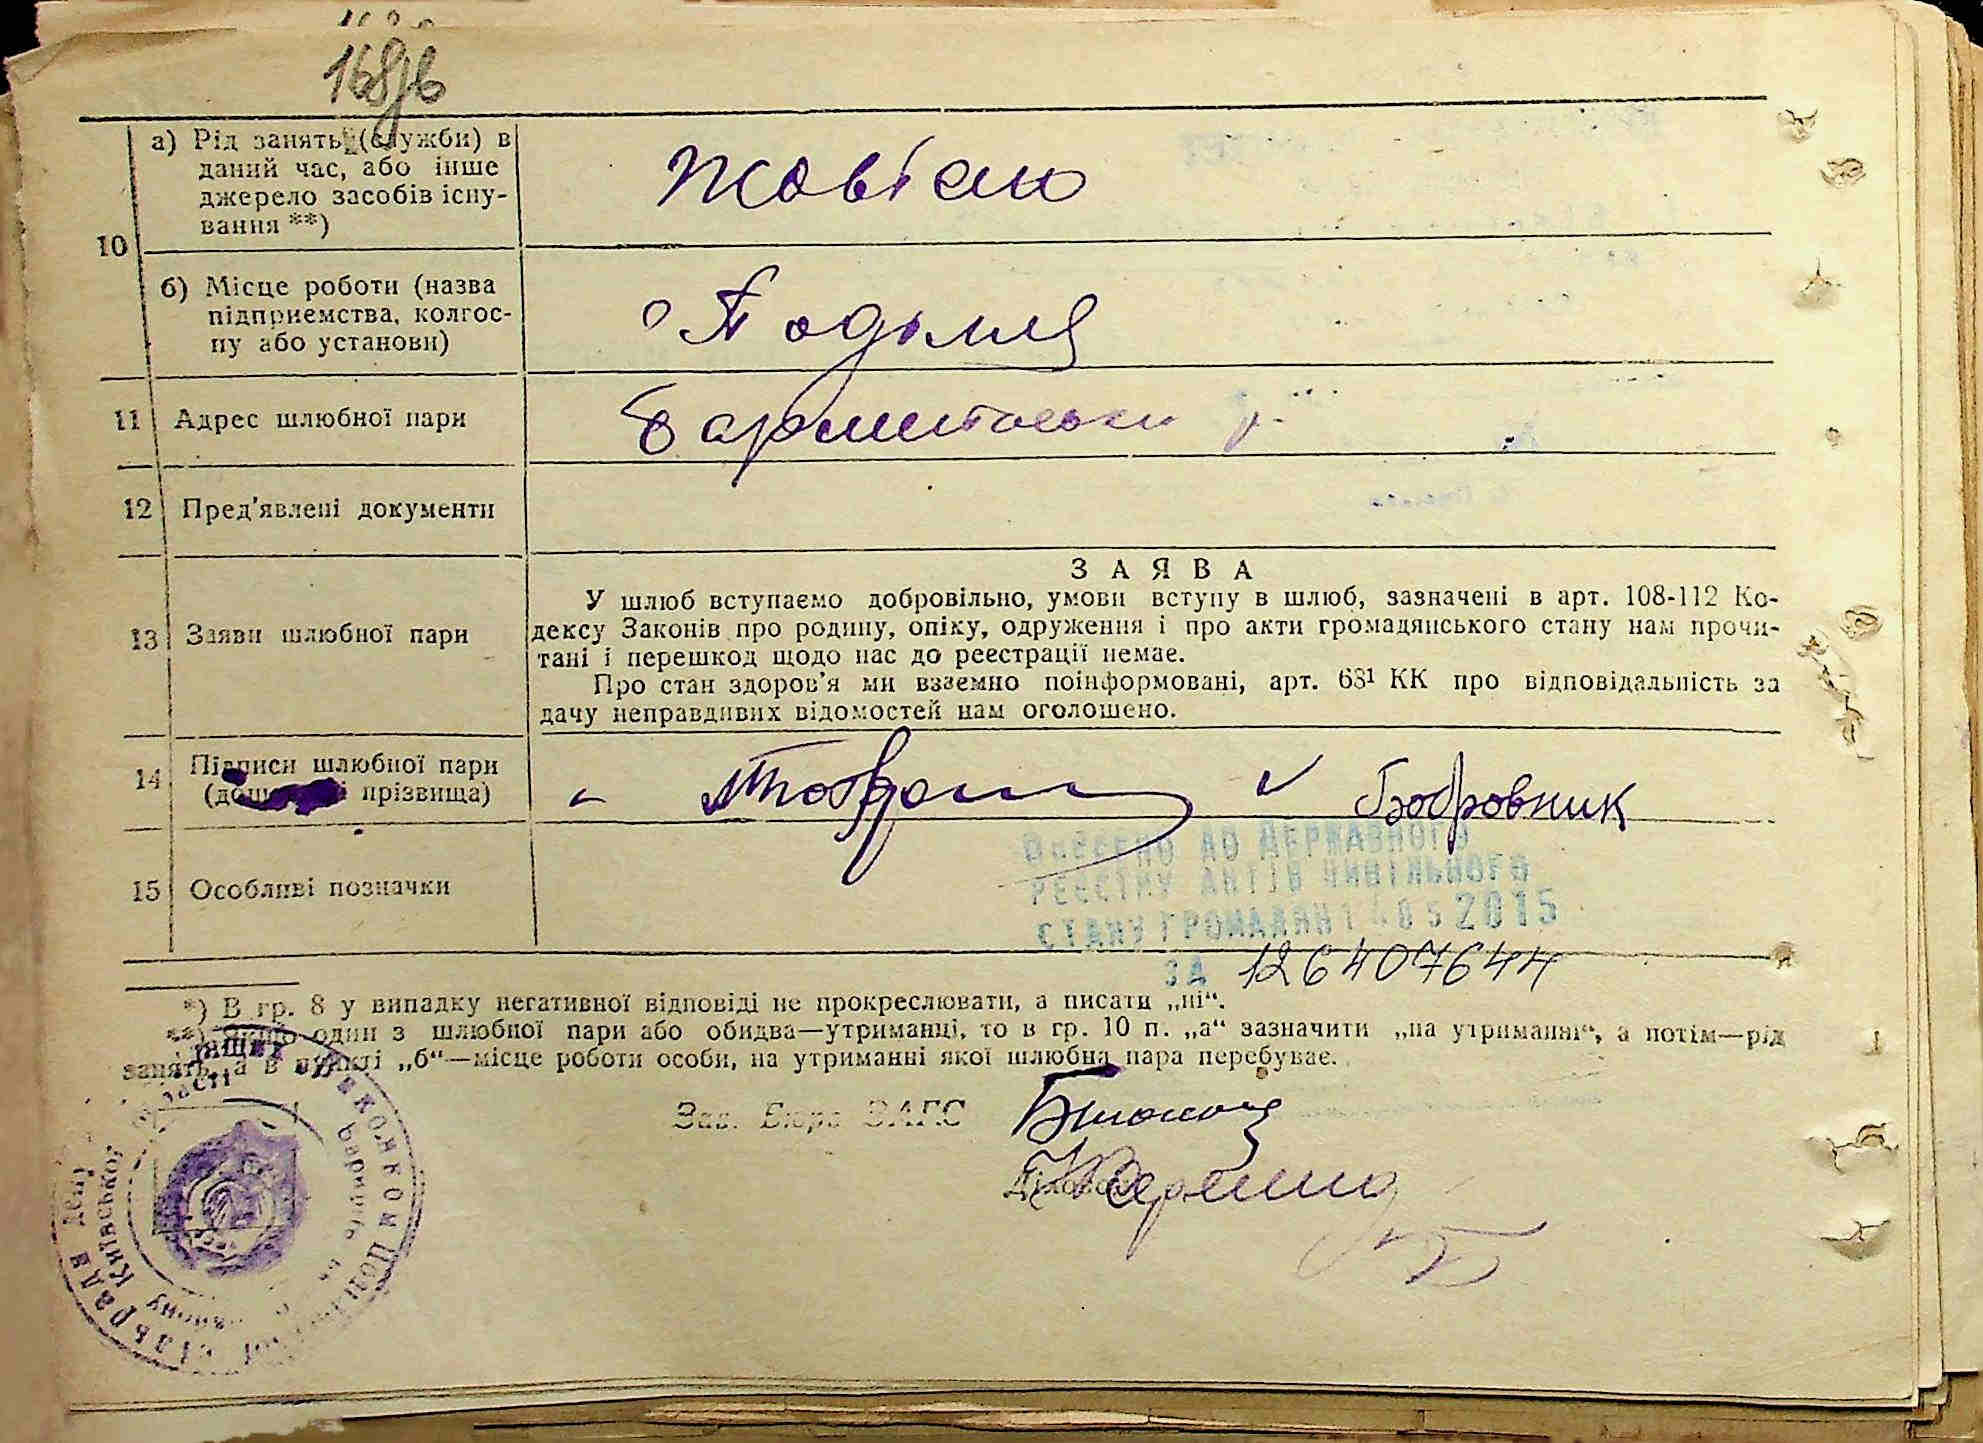 168/в
а) Рід занять (служби) в
даний час, або інше
джерело засобів існу-
вання **)
10
б) Місце роботи (назва
підприємства, колгос-
пу або установи)
с Подымя
11 Адрес шлюбної пари
12 Пред'явлені документи
ЗАЯВА
У шлюб вступаємо добровільно, умови вступу в шлюб, зазначені в арт. 108-112 Ко-
дексу Законів про родину, опіку, одруження і про акти громадянського стану нам прочи-
тані і перешкод щодо нас до реєстрації немає.
13 Заяви шлюбної пари
Про стан здоров'я ми взаємно поінформовані, арт. 68¹ КК про відповідальність за
дачу неправдивих відомостей нам оголошено.
14 Підписи шлюбної пари
прізвища)
Бобровник
15 Особливі позначки
ВНЕСЕНО ДО ДЕРЖАВНОГО
РЕЄСТРУ АКТІВ ЦИВІЛЬНОГО
СТАНУ ГРОМАДЯН 05 2015
ЗА 1264077644
*) В гр. 8 у випадку негативної відповіді не прокреслювати, а писати „ні“.
**) Якщо один з шлюбної пари або обидва—утриманці, то в гр. 10 п. „а“ зазначити „на утриманні“, а потім—рід
занять, а в пункті „б“—місце роботи особи, на утриманні якої шлюбна пара перебуває.
Зав. Бюро ЗАГС
Діловод